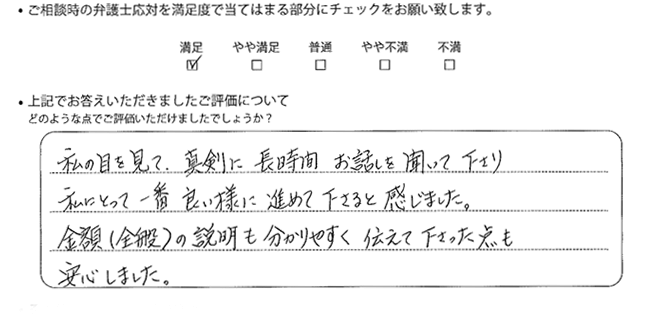 ・ご相談時の弁護士応対を満足度で当てはまる部分にチェックをお願い致します。
満足 やや満足 普通 やや不満 不満
☑ □ □ □ □
・上記でお答えいただきましたご評価について
どのような点でご評価いただけましたでしょうか？
私の目を見て、真剣に 長時間 お話しを聞いて下さり
私にとって一番 良い様に 進めて下さると感じました。
金額(全般)の説明も分かりやすく伝えて下さった点も
安心しました。